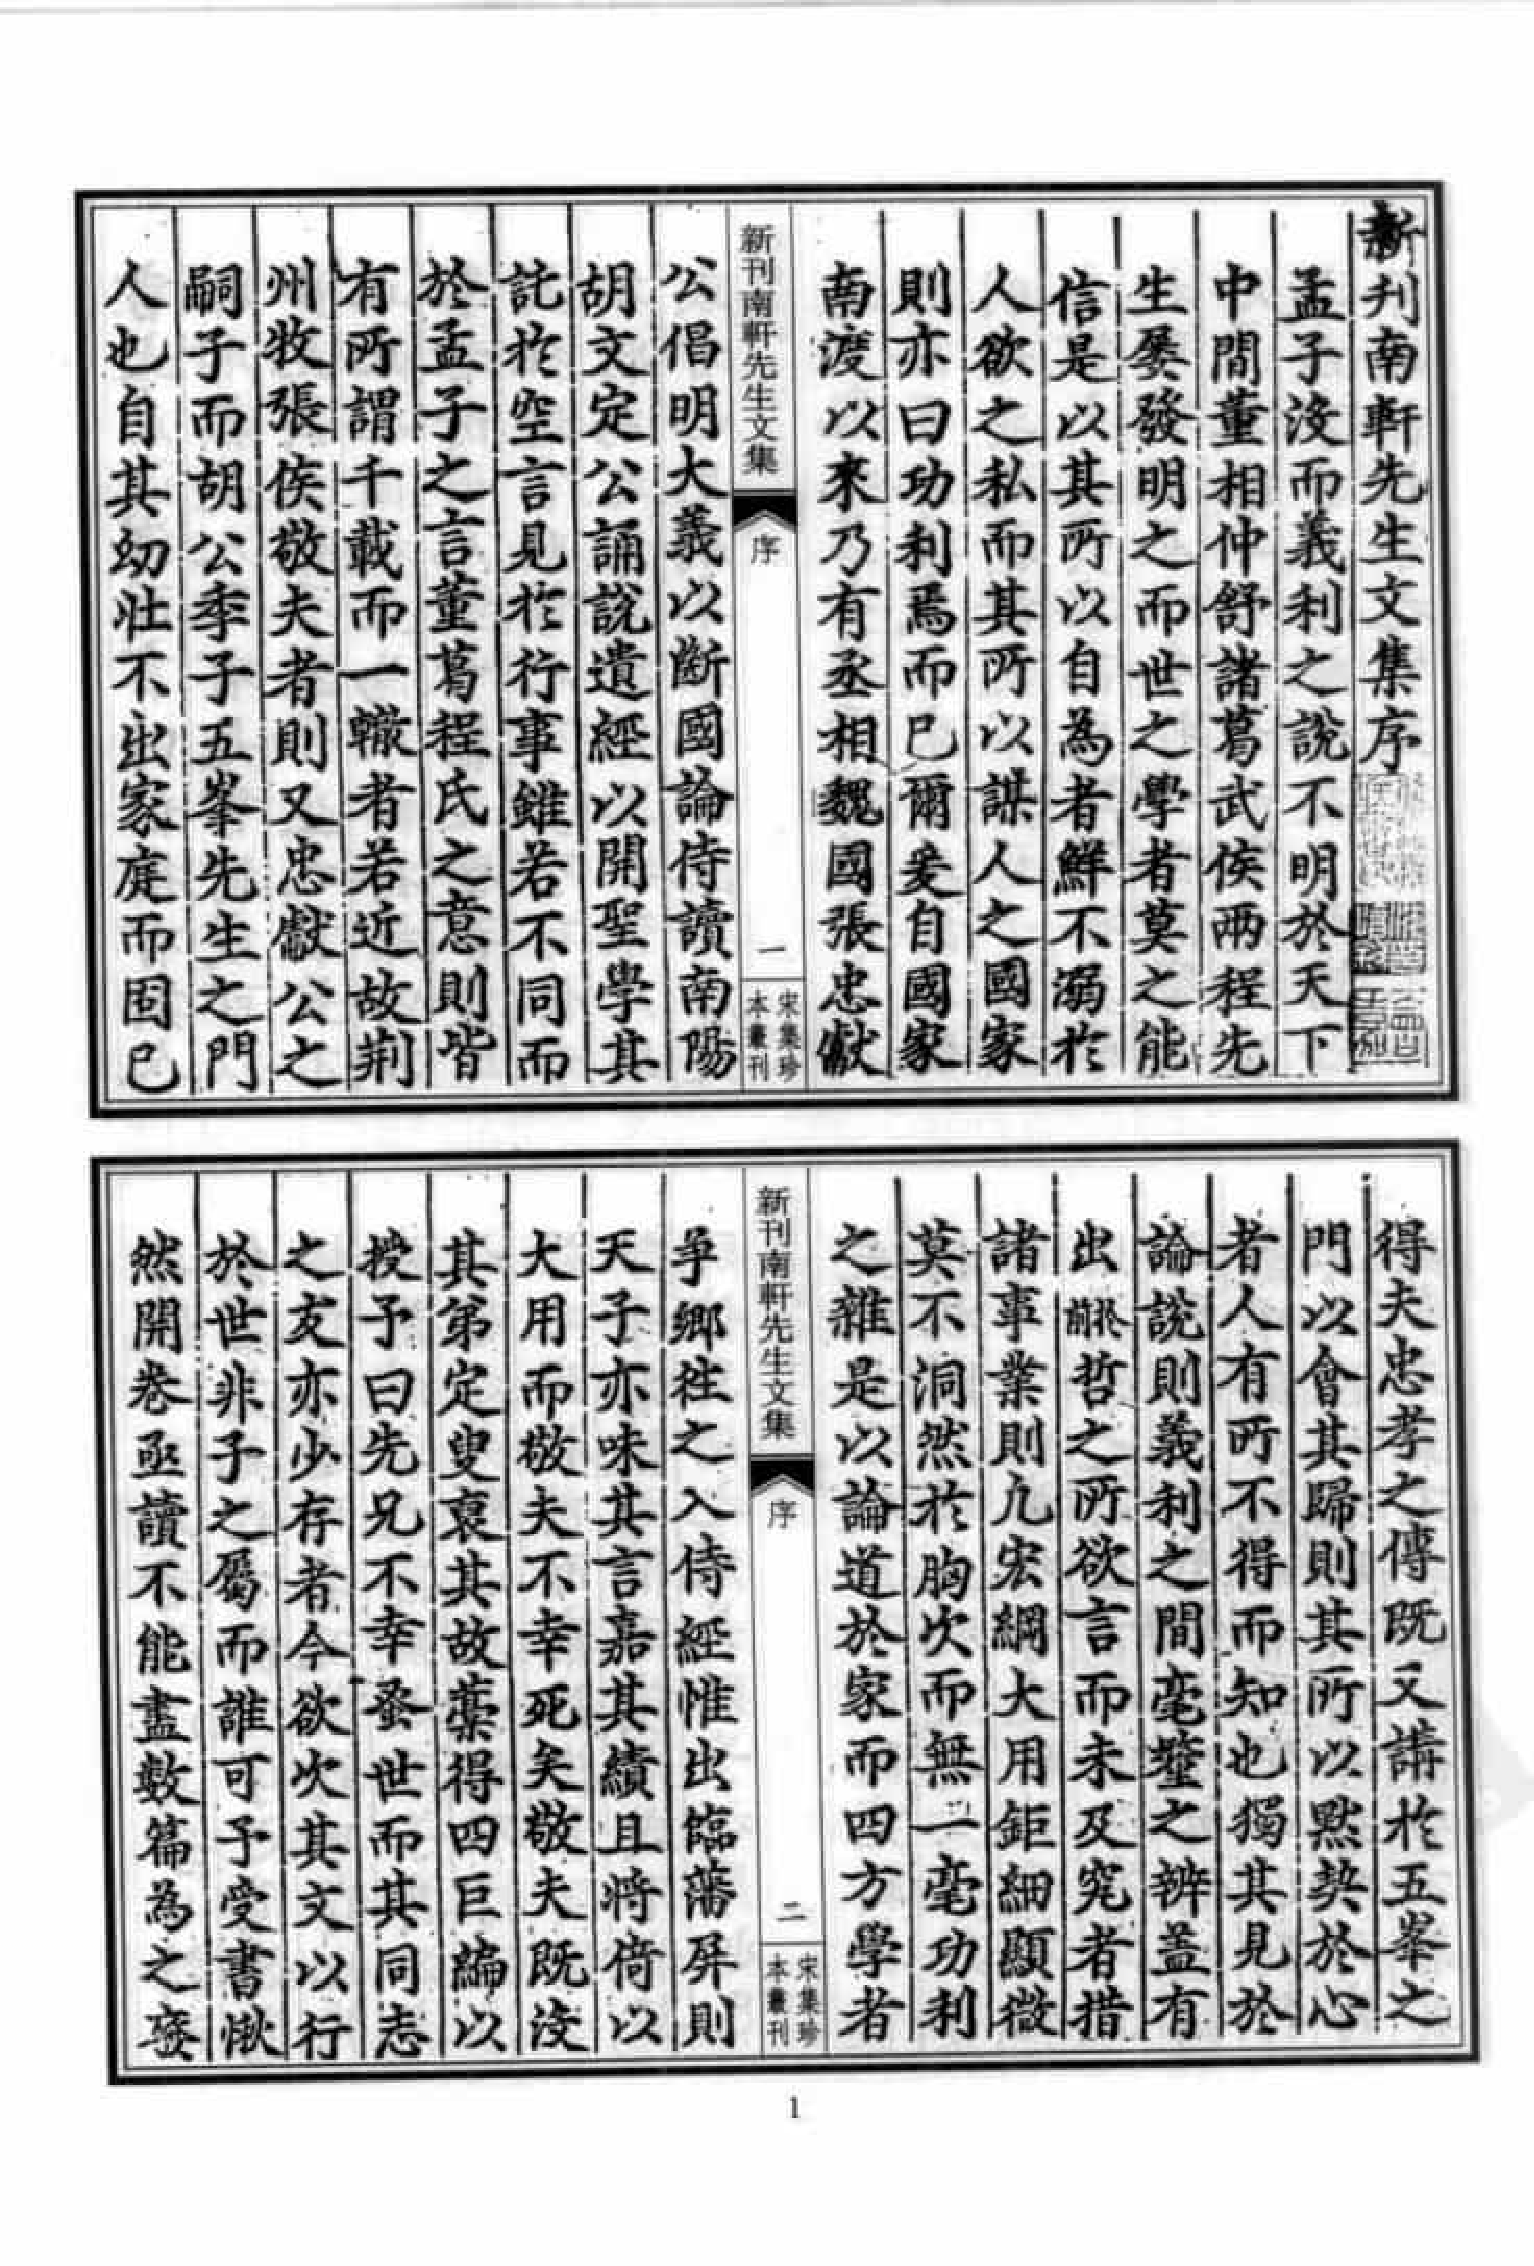 新刋南軒先生文集序
孟子沒而義利之說不明於天下
中間董相仲舒諸葛武侯兩程先
生屡發明之而世之學者莫之能
信是以其所以自為者鮮不溺於
人欲之私而其所以謀人之國家
則亦曰功利焉而已爾爰自國家
南渡以來乃有丞相魏國張忠獻
新刊南軒先生文集
序
一
宋集珍
本叢刊
公倡明大義以斷國論侍讀南陽
胡文定公誦說遺經以開聖學其
託於空言見於行事雖若不同而
於孟子之言董葛程氏之意則皆
有所謂千載而一轍者若近故荆
州牧張侯敬夫者則又忠獻公之
嗣子而胡公季子五峯先生之門
人也自其幼壯不出家庭而固已
得夫忠孝之傳既又講於五峯之
門以會其歸則其所以默契於心
者人有所不得而知也獨其見於
論說則義利之間毫釐之辨蓋有
出前哲之所欲言而未及究者措
諸事業則凡宏綱大用鉅細顯微
莫不洞然於胸次而無一毫功利
之雜是以論道於家而四方學者
新刊南軒先生文集
序
二
宋集珍
本叢刊
爭鄉往之入侍經惟出臨藩屏則
天子亦味其言嘉其績且將倚以
大用而敬夫不幸死矣敬夫既沒
其弟定叟裒其故藁得四巨編以
授予曰先兄不幸蚤世而其同志
之友亦少存者今欲次其文以行
於世非子之屬而誰可予受書愀
然開卷亟讀不能盡數篇為之廢
1